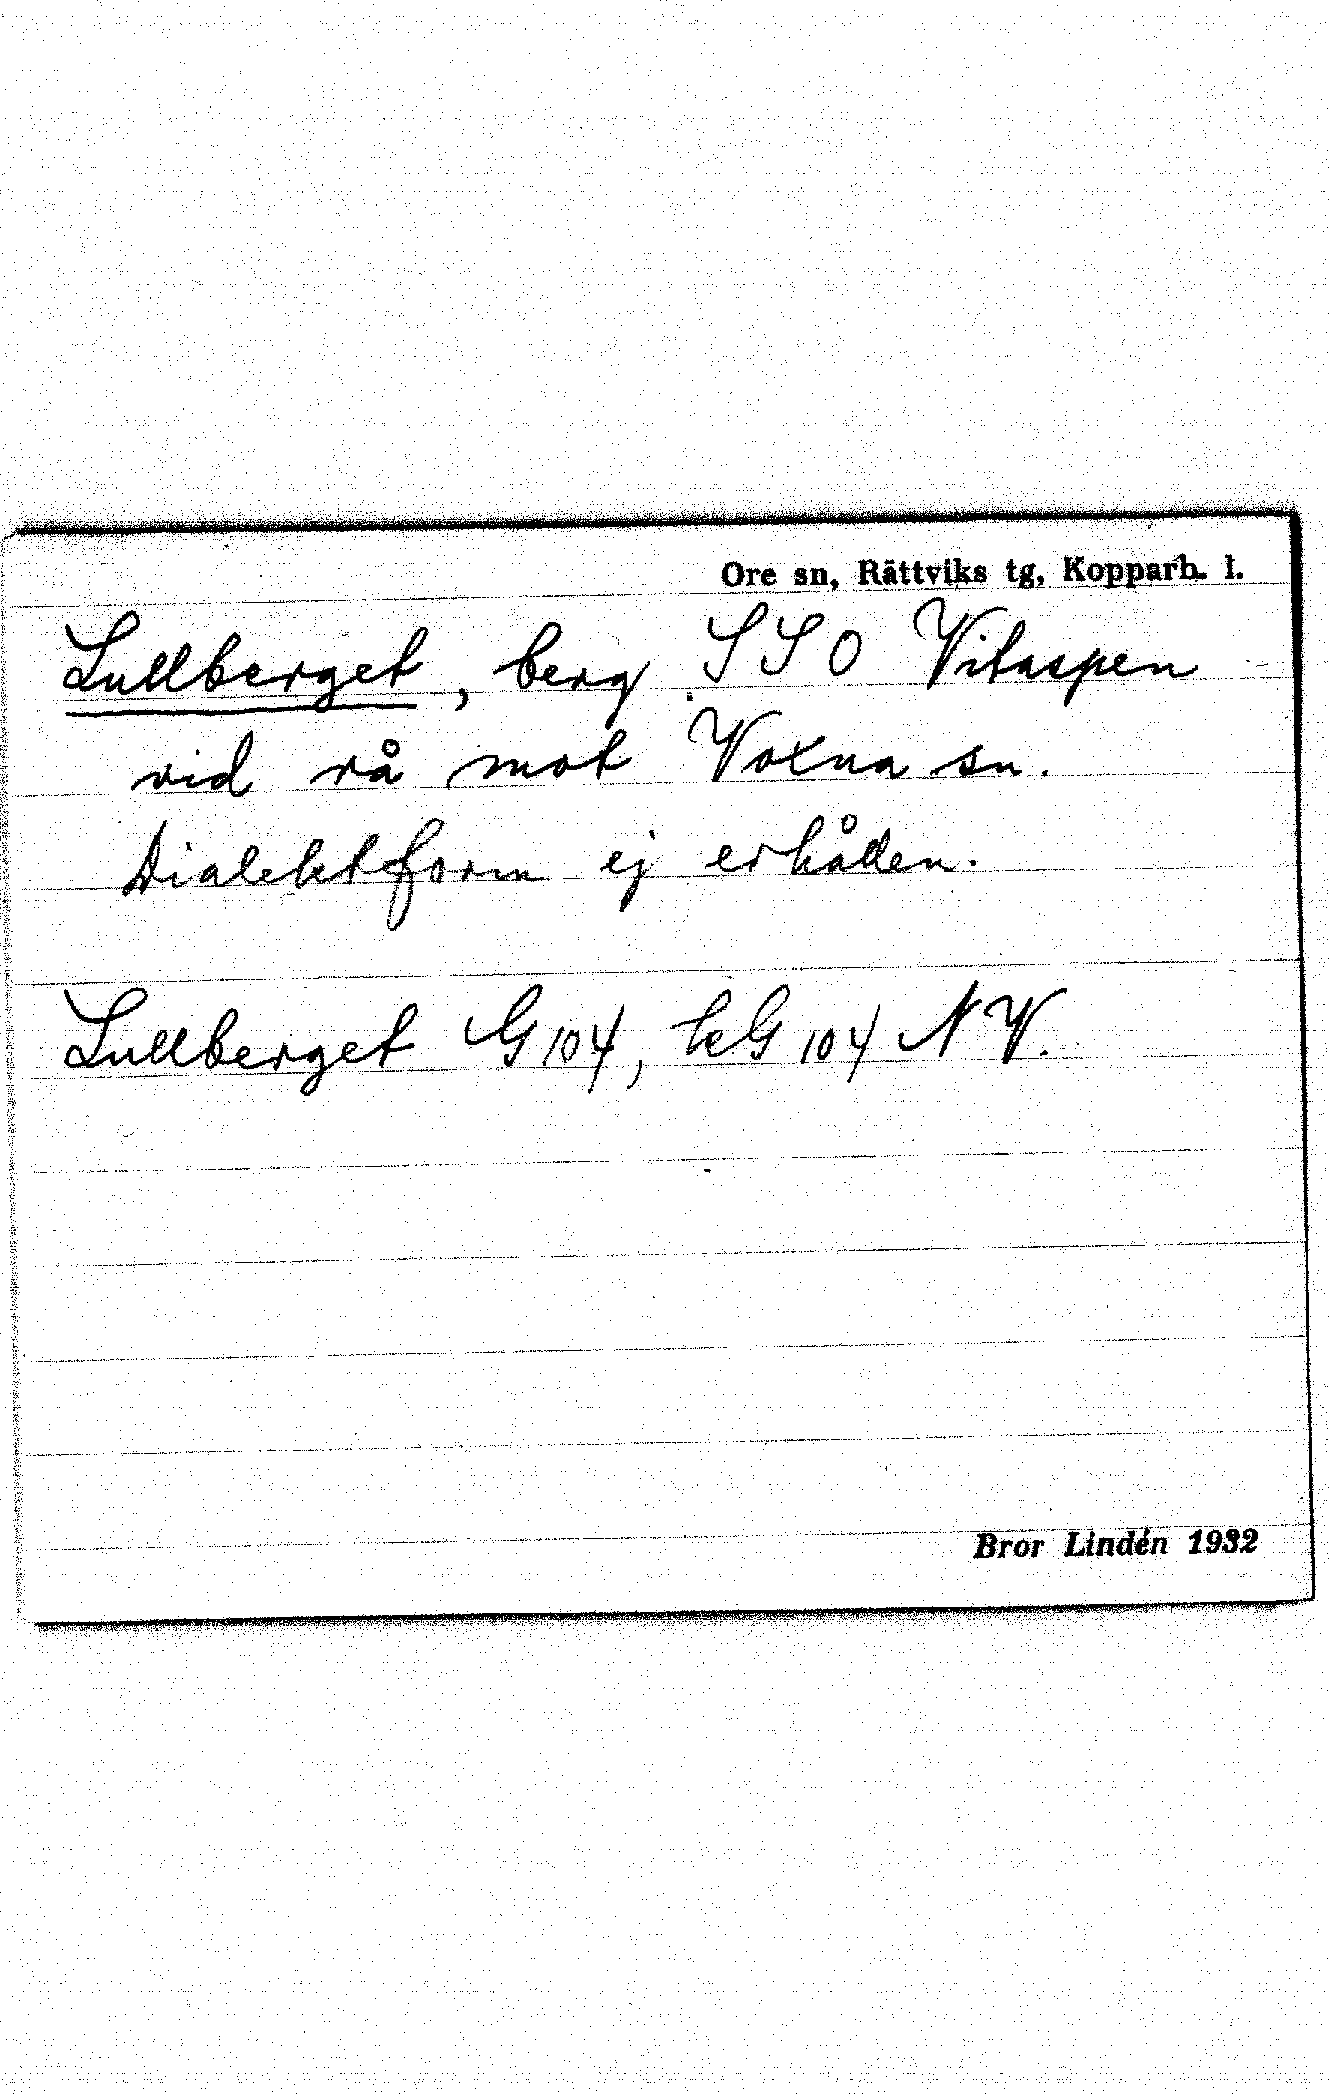 Ore sn, Rättviks tg, Kopparb. l.
Lullberget, berg SSO Vitaspen
vid rå mot Voxna sn.
Dialektform ej erhållen.
Lullberget G 104, keG 104 NV.
Bror Lindén 1932